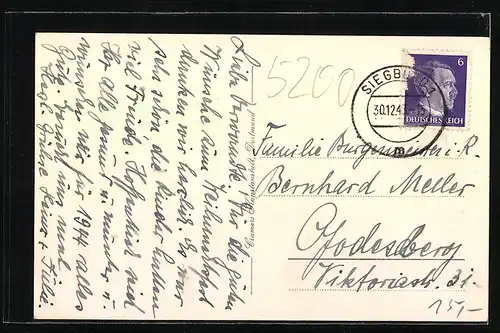 Liebe Verwandte. Für die guten
Wünsche zum Weihnachtsfest
danken wir herzlich. Es war
sehr schön, die Kinder hatten
viel Freude. Hoffentlich seid
Ihr Alle gesund u. munter u.
wünschen wir für 1944 alles
Gute.
Cramers Kunstanstalt, Dortmund
5200
SIEGBURG 1
30.12.4
6
DEUTSCHES REICH
Familie Bürgermeister i. R.
Bernhard Meller
Godesberg
Viktoriastr. 31.
15,-